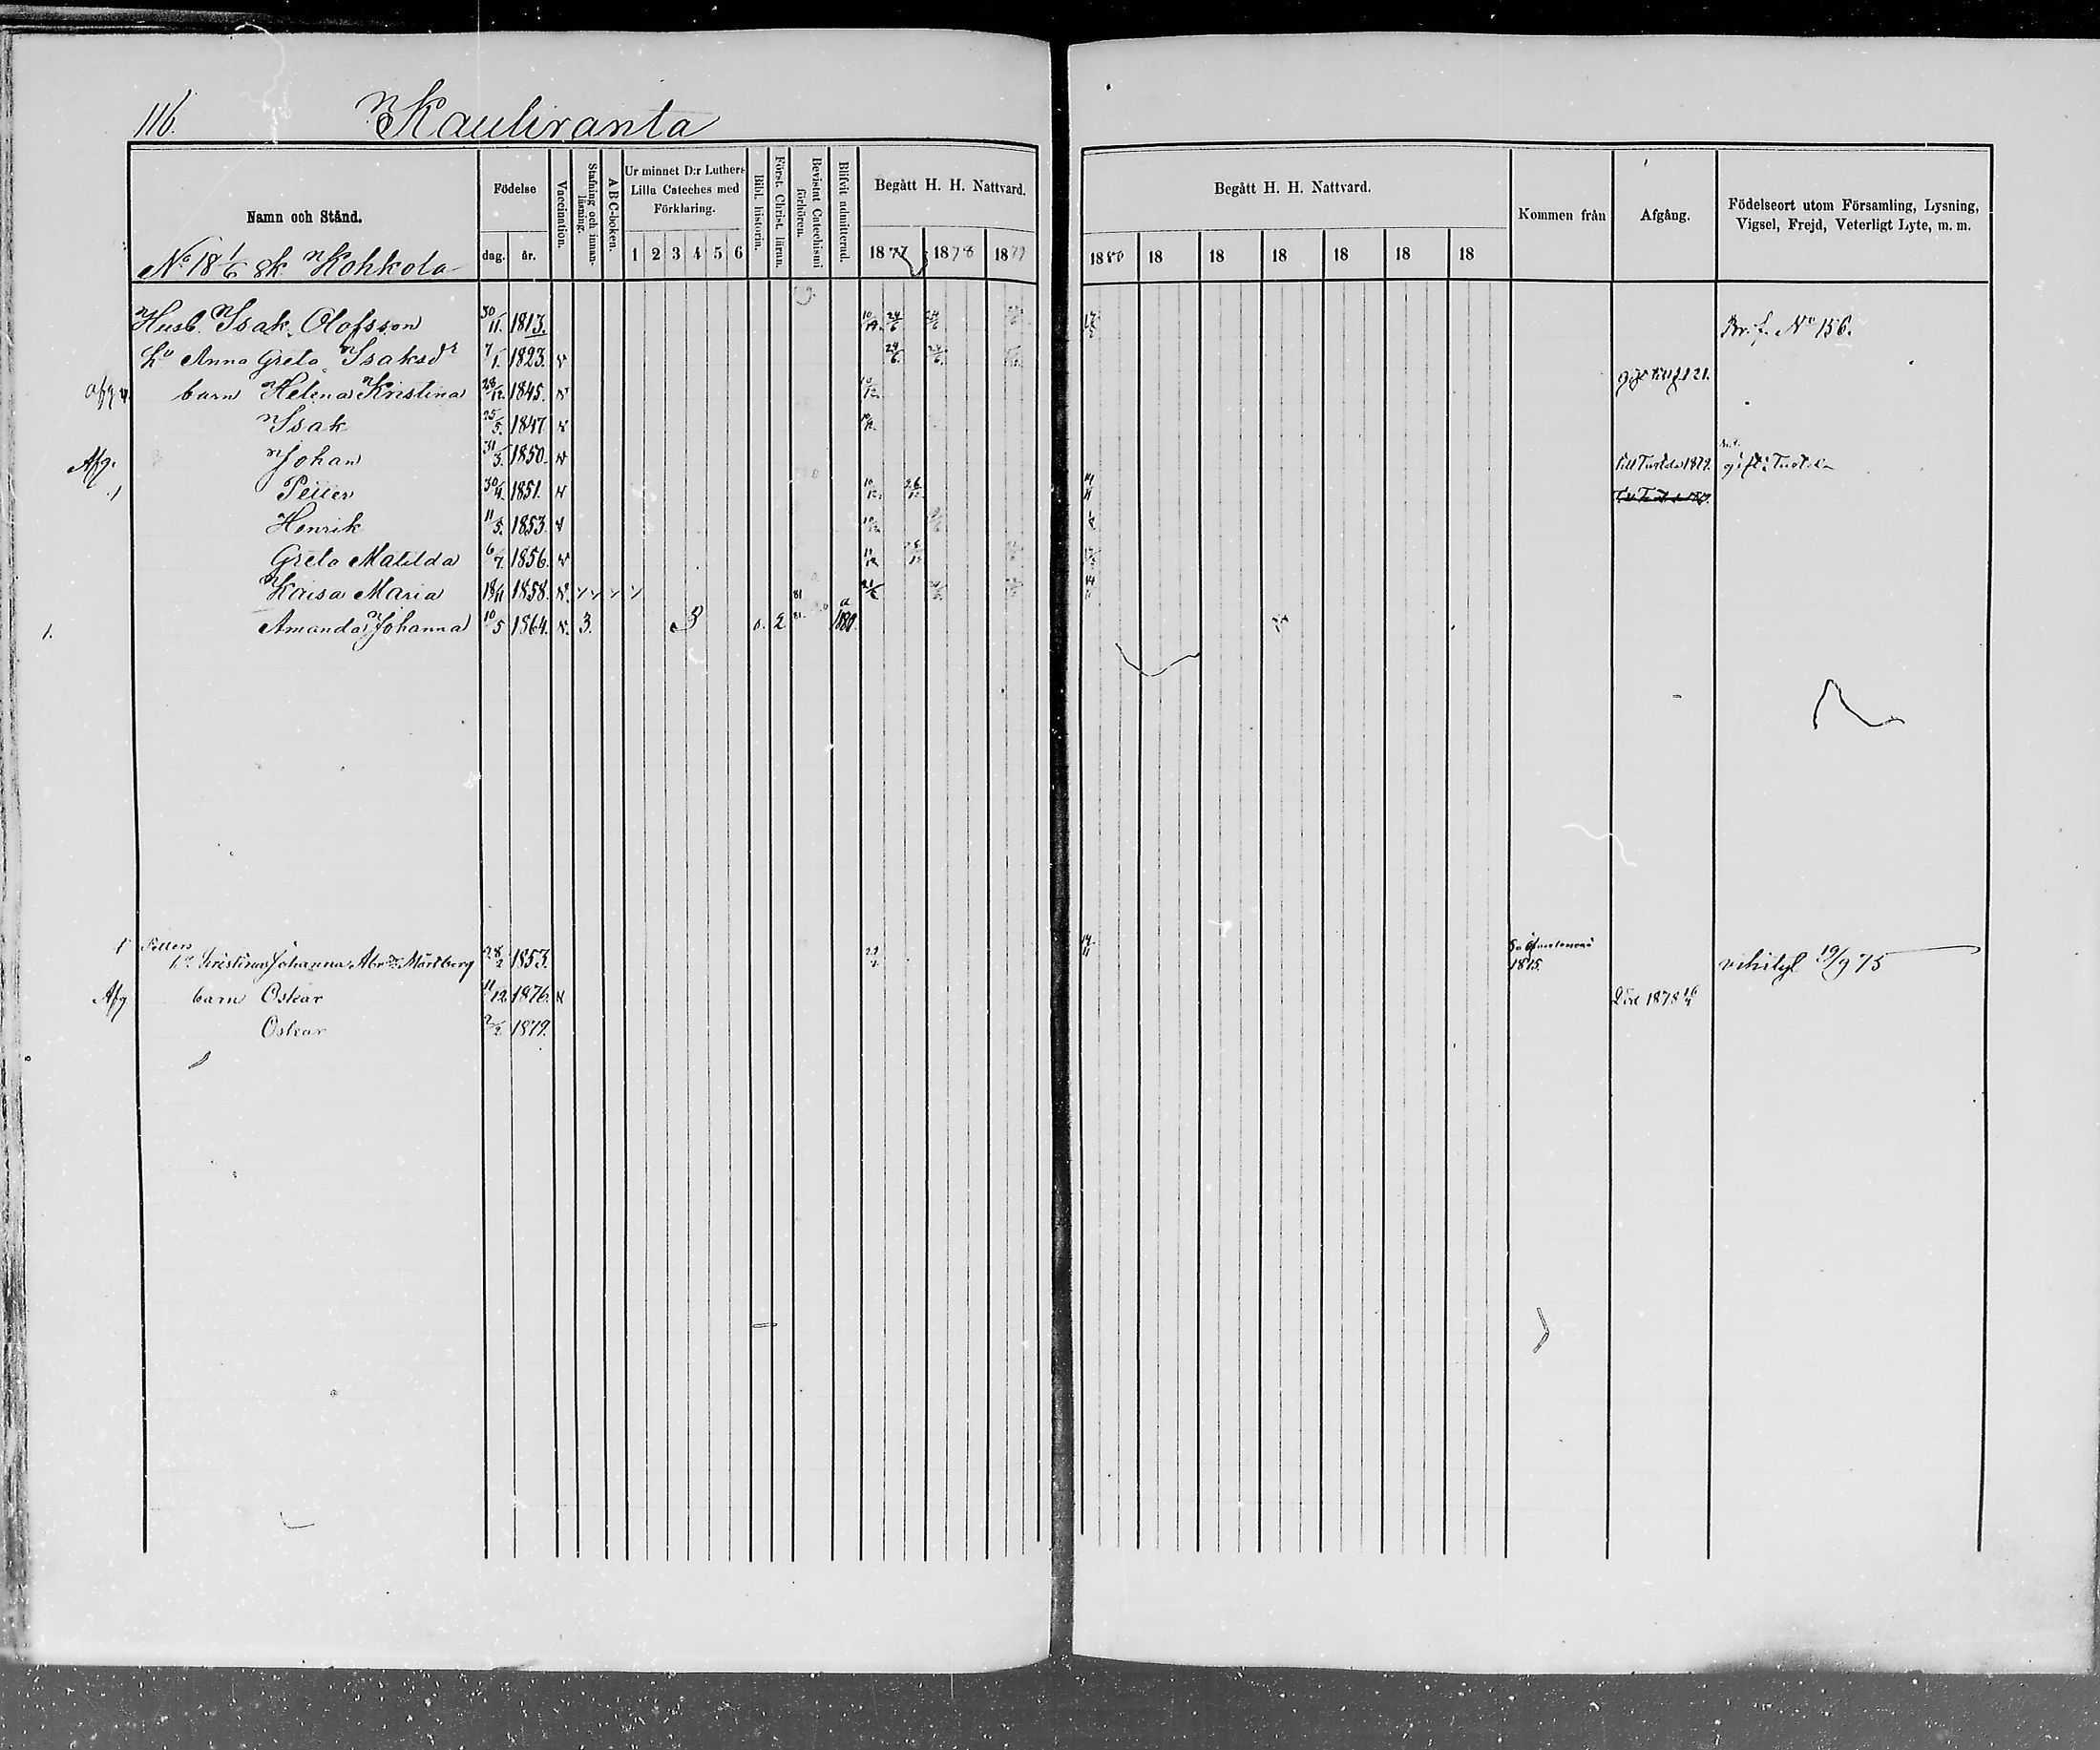 116. Kauliranta
Namn och Stånd.
Födelse
dag. år.
Vaccination.
Stafning och innanläsning.
A B C-boken.
Ur minnet D:r Luthers Lilla Cateches med Förklaring.
1 2 3 4 5 6
Bibl. historia.
Först. Christ. läran.
Bevistat Catechismi förhören.
Blifvit admitterad.
Begått H. H. Nattvard.
1877 1878 1879
Begått H. H. Nattvard.
1880 18 18 18 18 18 18
Kommen från
Afgång.
Födelseort utom Församling, Lysning, Vigsel, Frejd, Veterligt Lyte, m. m.
No 18 1/6 sk Kohkola
Husb. Isak Olofsson 30/11. 1813. 10/12. 24/6 24/6 Br. f. No 156.
Hu Anna Greta Isaksdr 7/1. 1823. v 24/6. 24/6.
afg barn Helena Kristina 28/12. 1845. v 10/12. 121.
Isak 25/5. 1847 v 10/12.
Afg. Johan 31/3. 1850. v Till Turtola 1879. gift i Turtola
Petter 30/4. 1851. v 10/12. 26/12.
Henrik 11/5. 1853. v 10/12
Greta Matilda 6/7. 1856. v 10/12
Kaisa Maria 18/11 1858. v. 81
1. Amanda Johanna 10/5 1864. v. 3. 3 2 81. a 1880.
1 Petters
hu Kristina Johanna Abr.dr Märtberg 28/2 1853. 14/11 1875. 19/9 75
Afg barn Oskar 11/12. 1876. v Död 1878
Oskar 2/2 1879.